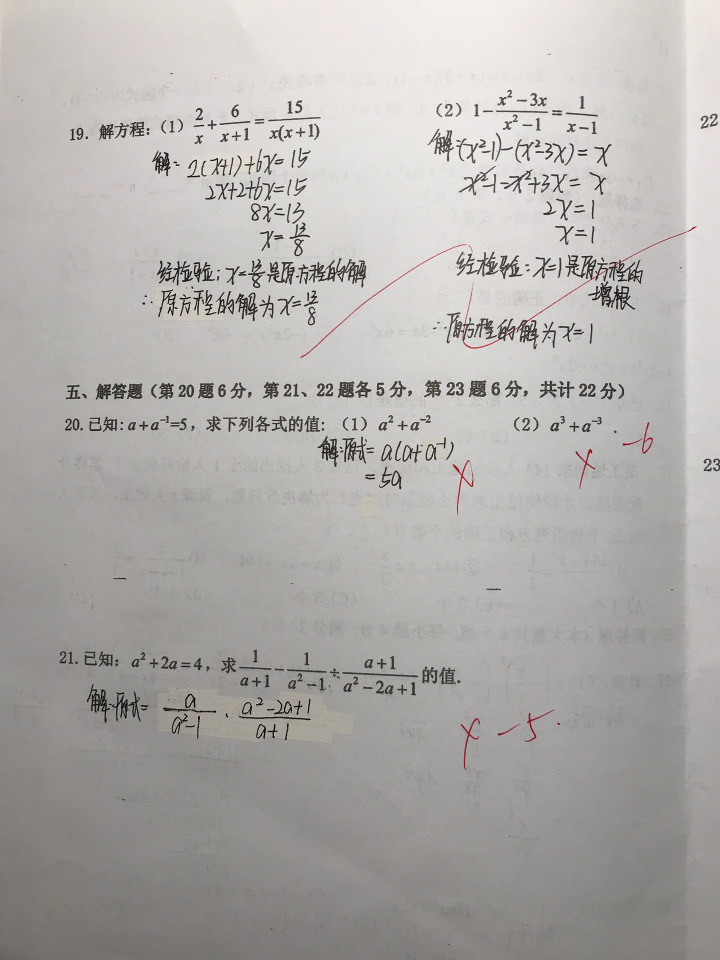 19. 解方程：（1） 2/x + 6/(x+1) = 15/(x(x+1))
解： 2(x+1)+6x=15
2x+2+6x=15
8x=13
x=13/8
经检验：x=13/8是原方程的解
∴原方程的解为x=13/8
（2） 1 - (x²-3x)/(x²-1) = 1/(x-1)
解：(x²-1)-(x²-3x)=x
x²-1-x²+3x=x
2x=1
x=1
经检验：x=1是原方程的
增根
∴原方程的解为x=1
22
五、解答题（第20题6分，第21、22题各5分，第23题6分，共计22分）
20.已知：a+a⁻¹=5，求下列各式的值：（1） a²+a⁻² （2） a³+a⁻³ .
解：原式=a(a+a⁻¹)
=5a
-6
23
21.已知：a²+2a=4，求 1/(a+1) - 1/(a²-1) ÷ (a+1)/(a²-2a+1) 的值.
解：原式= a/(a²-1) · (a²-2a+1)/(a+1)
-5.